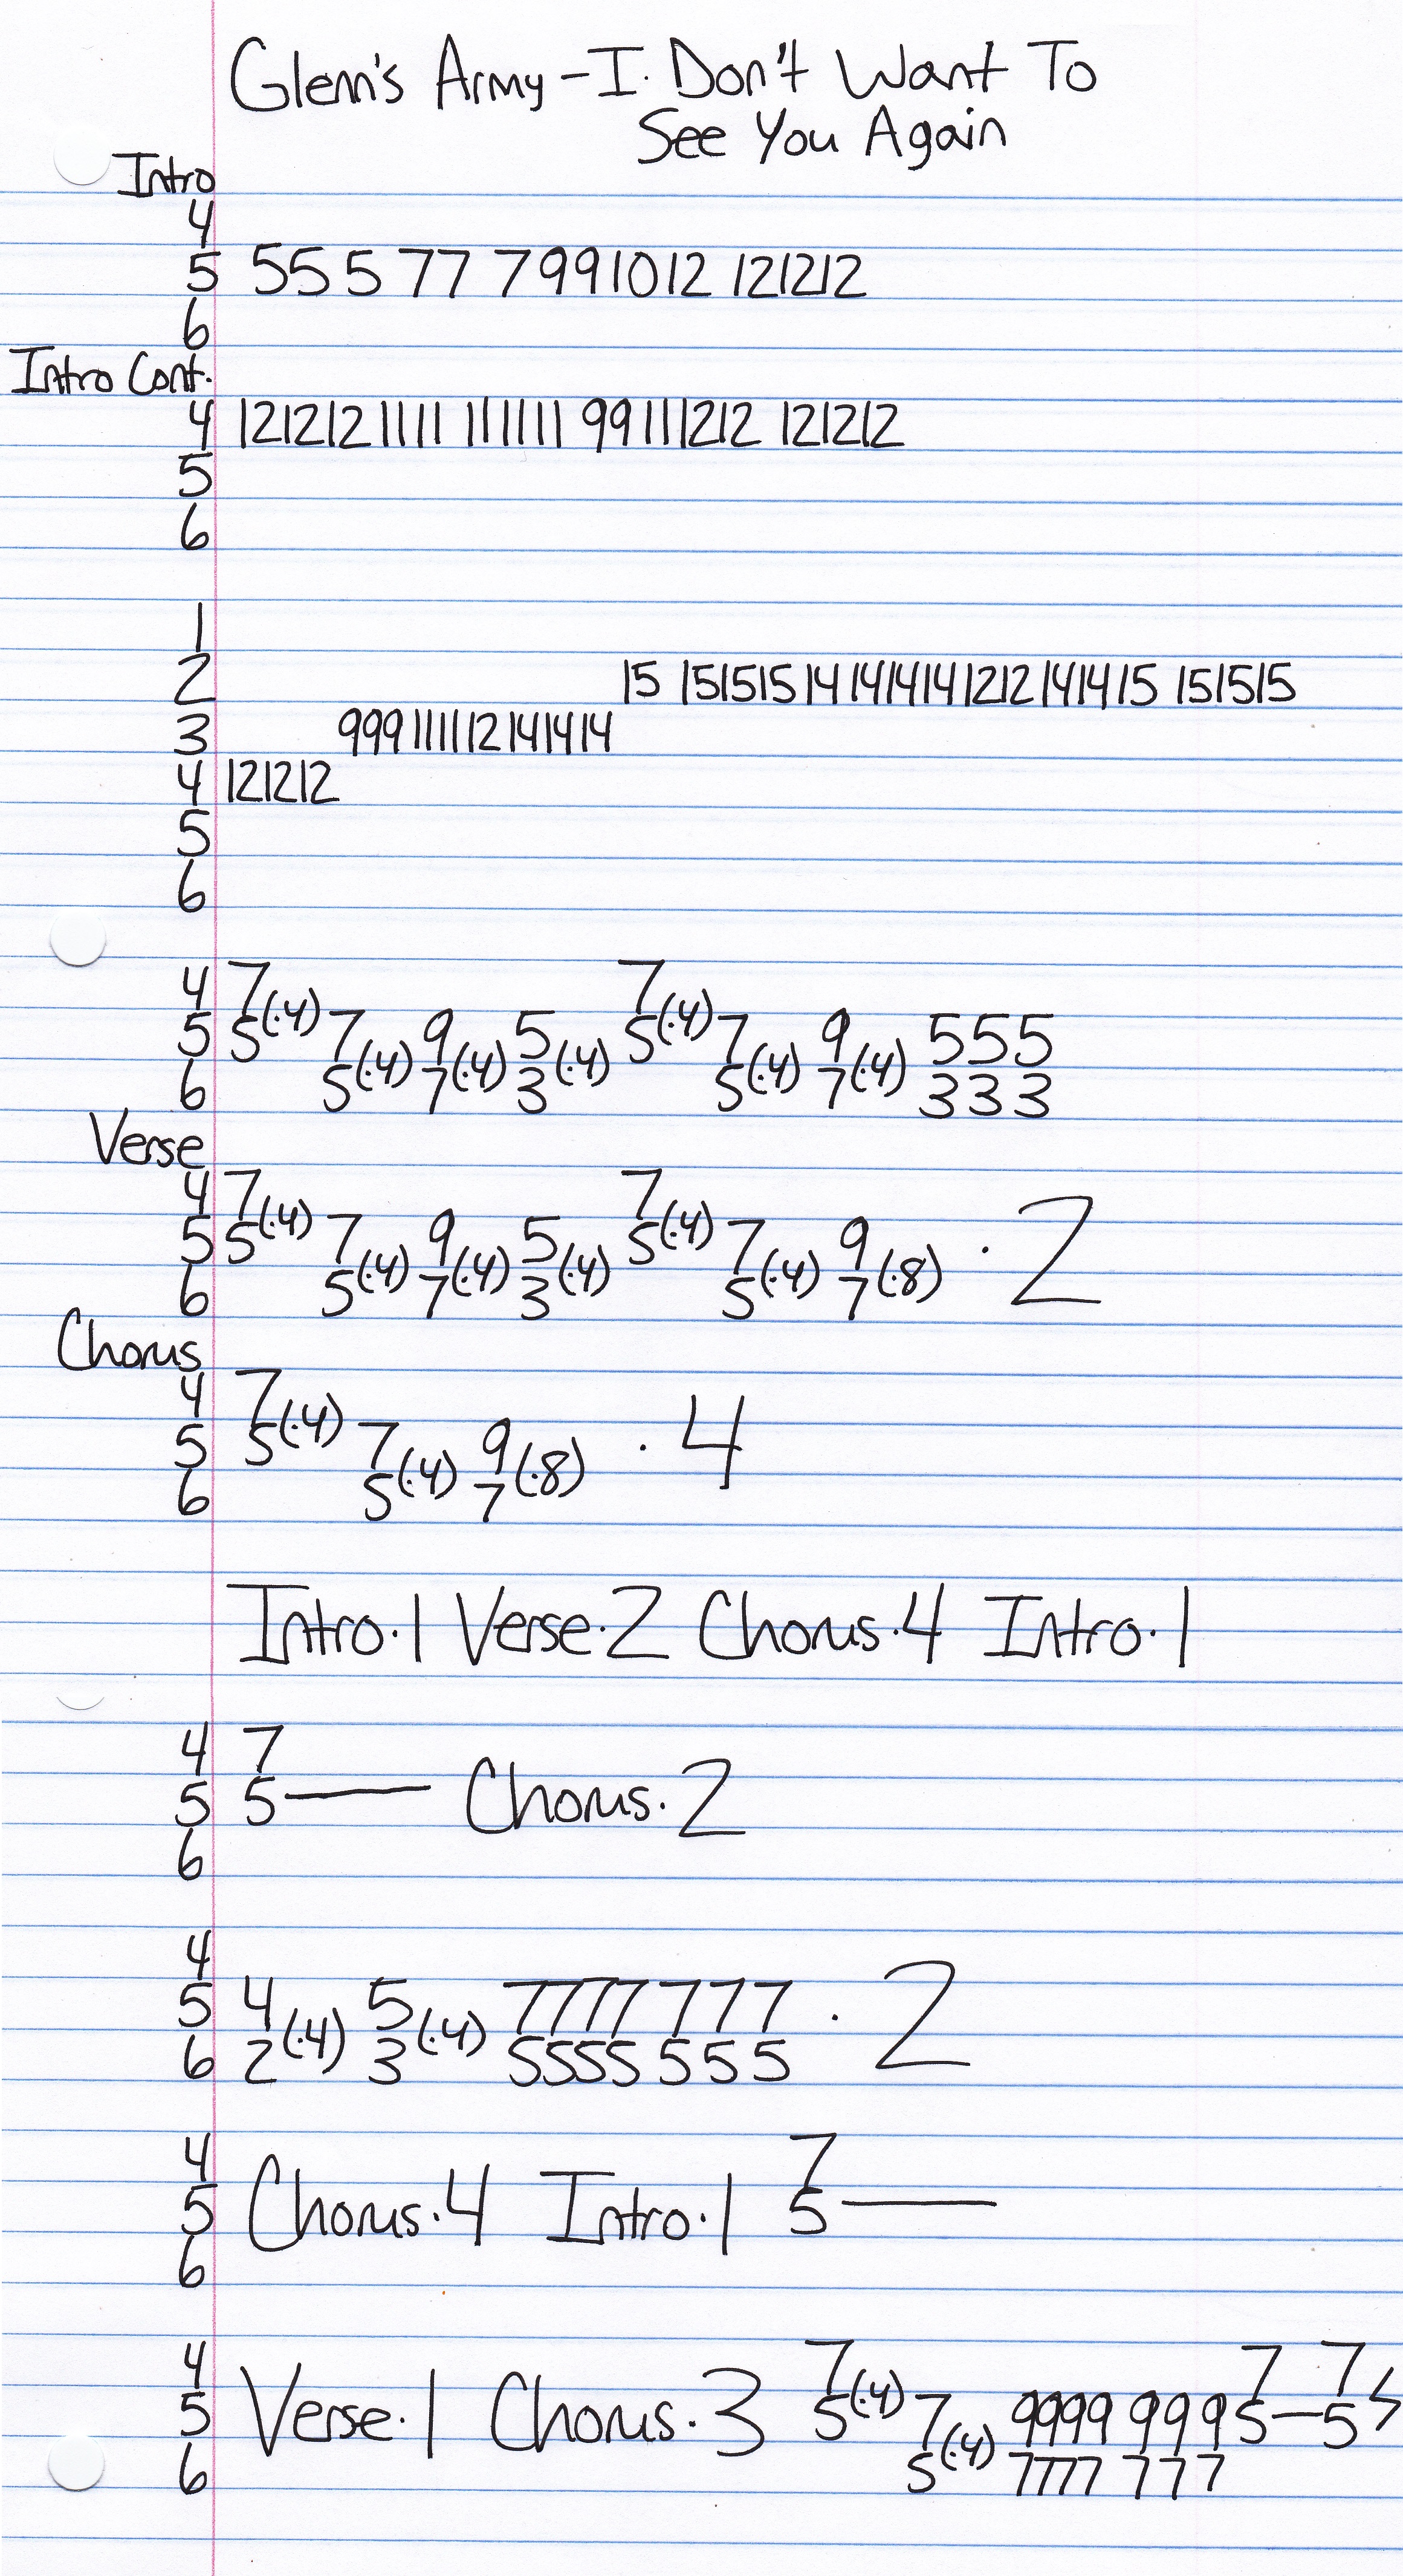 Glenn's Army - I Don't Want To
See You Again
Intro
4
5 55 5 77 7 99 10 12 12 12 12
6
Intro Cont.
4 12 12 12 11 11 11 11 11 99 11 12 12 12 12 12
5
6
1
2 15 15 15 15 14 14 14 14 12 12 14 14 15 15 15 15
3 999 11 11 12 14 14 14
4 12 12 12
5
6
4 7 7
5 5(·4) 7 9 5 5(·4) 7 9 5 5 5
6 5(·4) 7(·4) 3(·4) 5(·4) 7(·4) 3 3 3
Verse
4 7 7
5 5(·4) 7 9 5 5(·4) 7 9 · 2
6 5(·4) 7(·4) 3(·4) 5(·4) 7(·8)
Chorus
4 7
5 5(·4) 7 9 · 4
6 5(·4) 7(·8)
Intro·1 Verse·2 Chorus·4 Intro·1
4 7
5 5— Chorus·2
6
4
5 4 5 7777 7 7 7 · 2
6 2(·4) 3(·4) 5555 5 5 5
4 7
5 Chorus·4 Intro·1 5—
6
4 7 7 7
5 Verse·1 Chorus·3 5(·4) 7 9999 9 9 9 5—5
6 5(·4) 7777 7 7 7